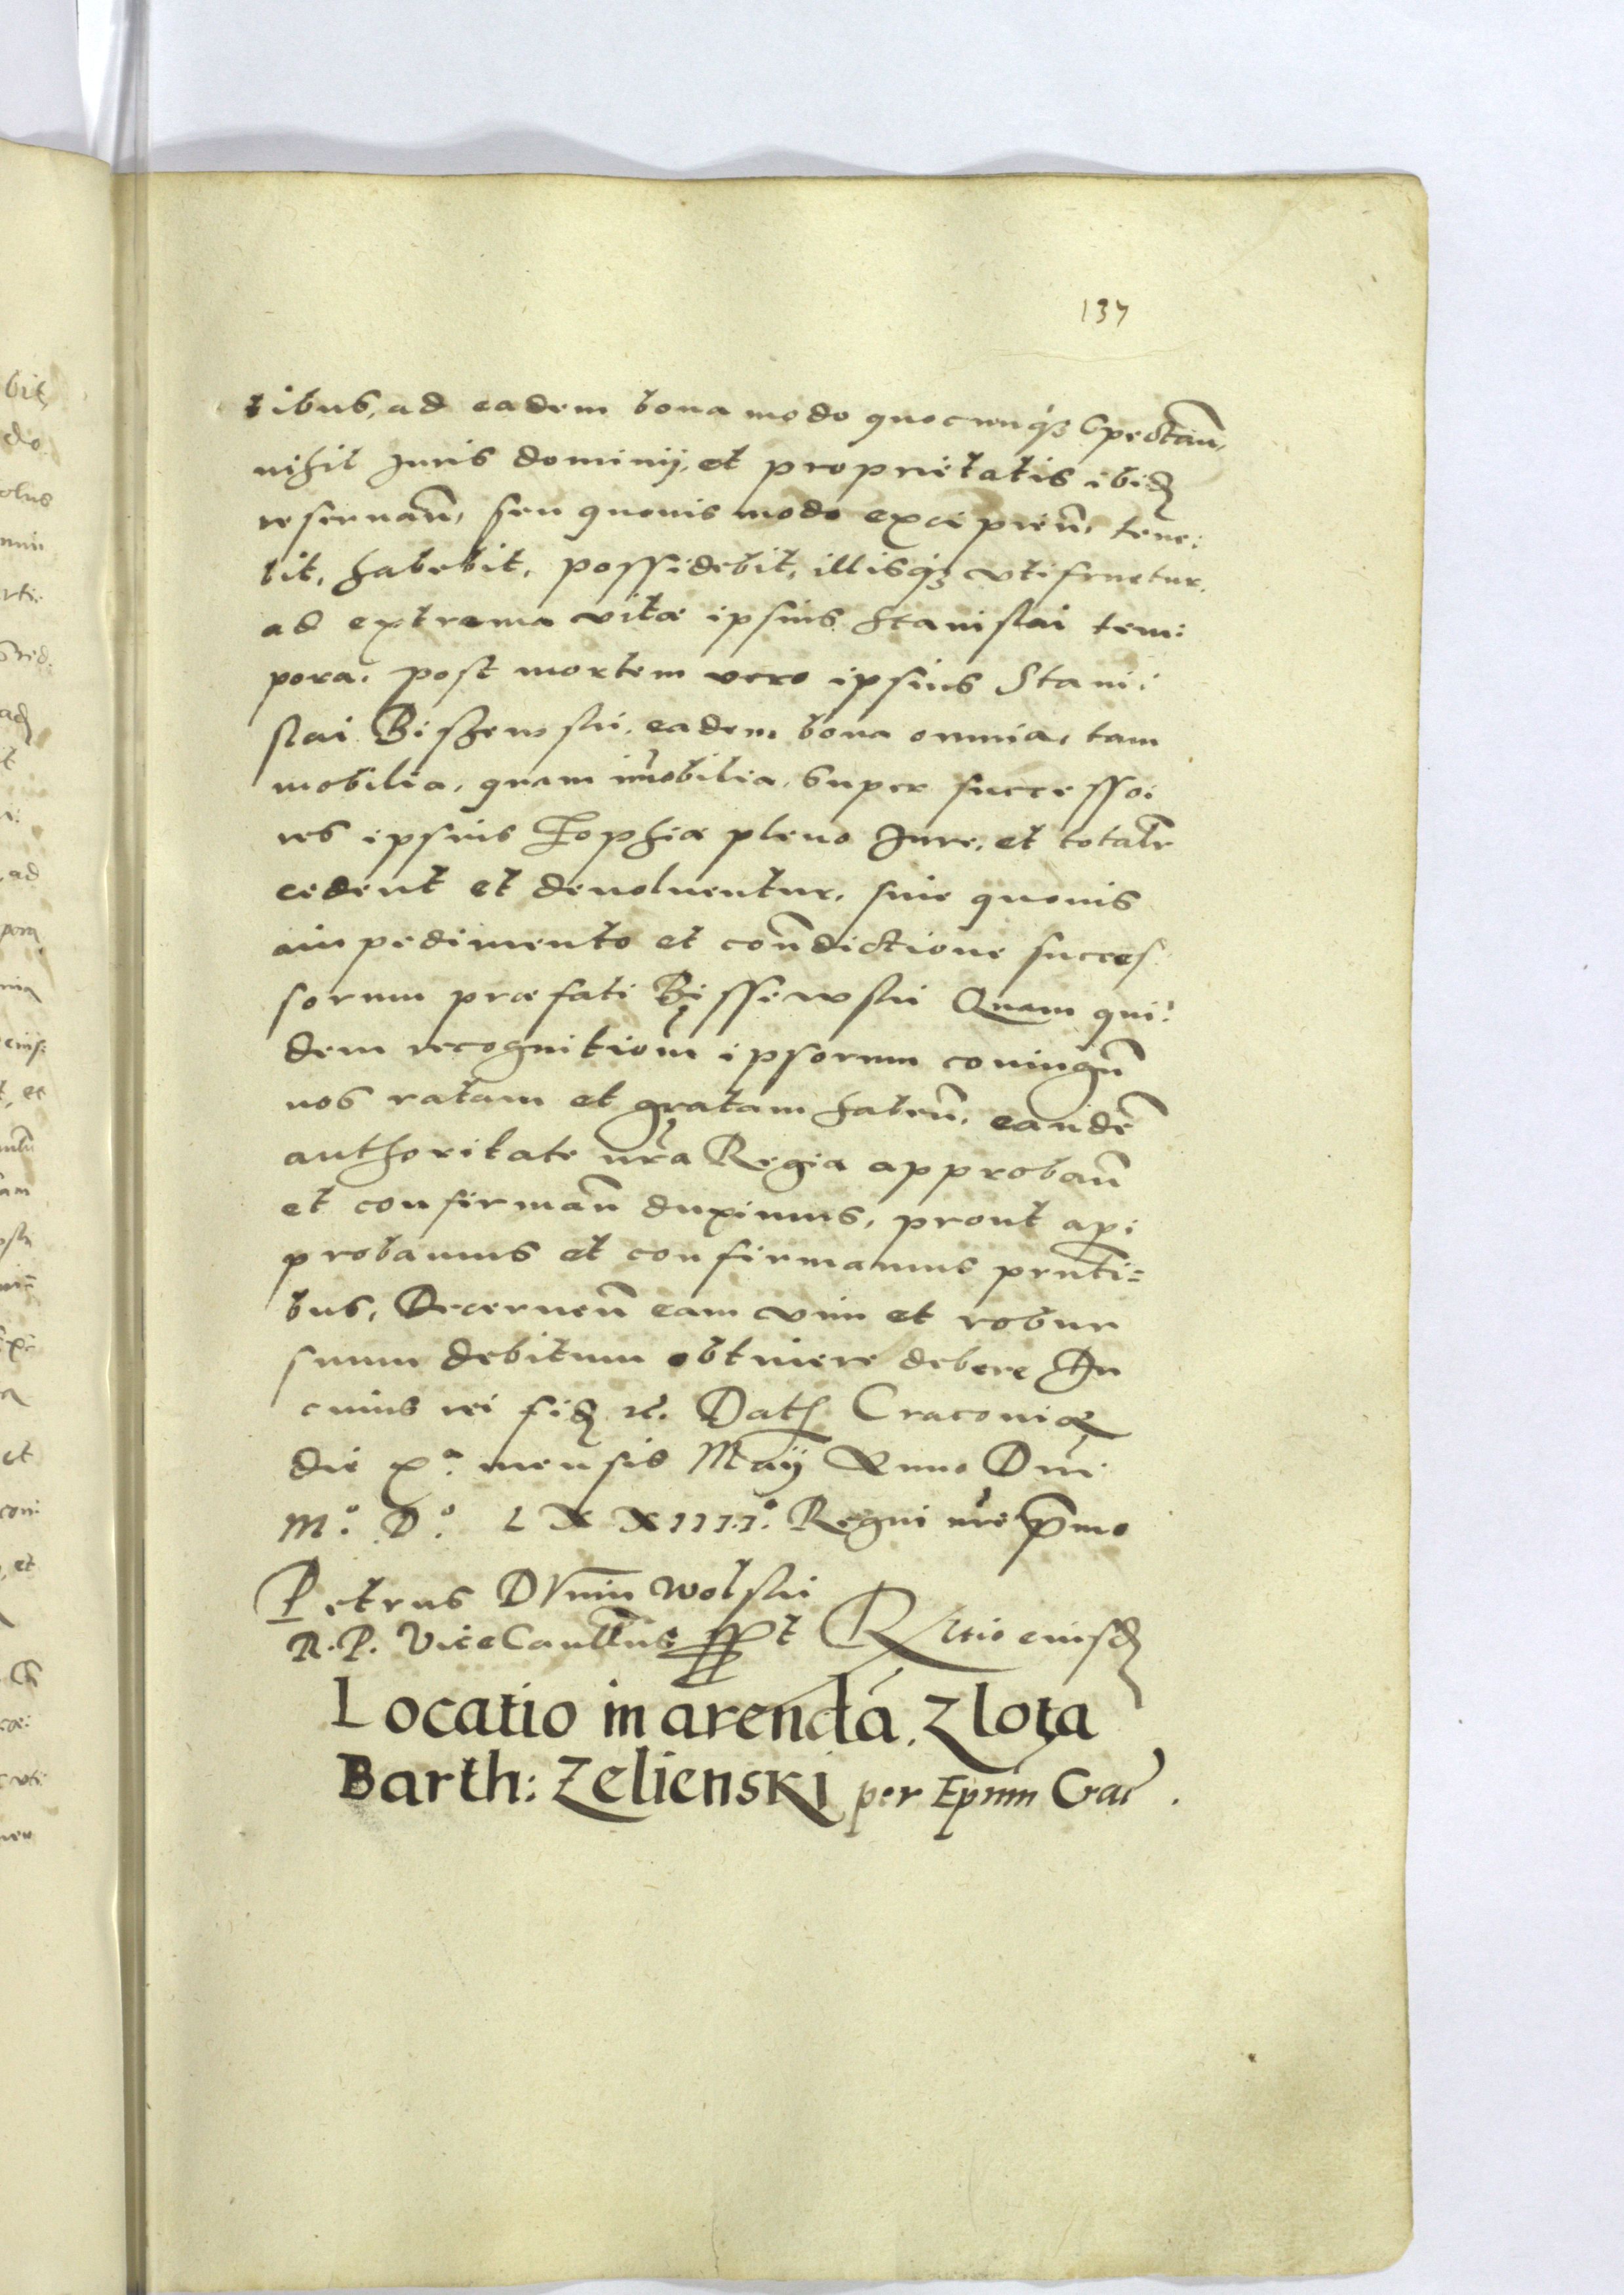 137
tibus, ad eadem bona modo quocunq3 spectan̄,
nihil Juris dominij, et proprietatis ibid
reseruan̄, seu quouis modo excipien̄, tene:
bit, habebit, possidebit, illisq3 vtifruetur.
ad extrema vitæ ipsius Stanislai tem:
pora. post mortem vero ipsius Stani:
slai Bishewski, eadem bona omnia, tam
mobilia, quam im̄obilia, super successo:
res ipsius Zophiæ pleno Jure, et totalr̄
cedent et deuoluentur, sine quouis
impedimento et con̄dictione succes
sorum præfati Bissewski Quam qui:
dem recognitionē ipsorum coniugū
nos ratam et gratam haben̄, eandē
authoritate nr̄a Regia approban̄
et confirman̄ duximus, prout ap:
probamus et confirmamus prn̄ti=
bus, Decernen̄ eam vim et robur
suum debitum obtinere debere In
cuius rei fid etc. Dat Cracouiæ
die xa. mensis Maij Anno Dn̄i
Mo. Do. LXXIIIIo. Regni nr̄i p̄mo
Petrus Dunin Wolski
R. P. ViceCancell̄us sspt Rltio eiusd
Locatio in arendā. Zlota
Barth: Zelienski per Epum Crac̄.